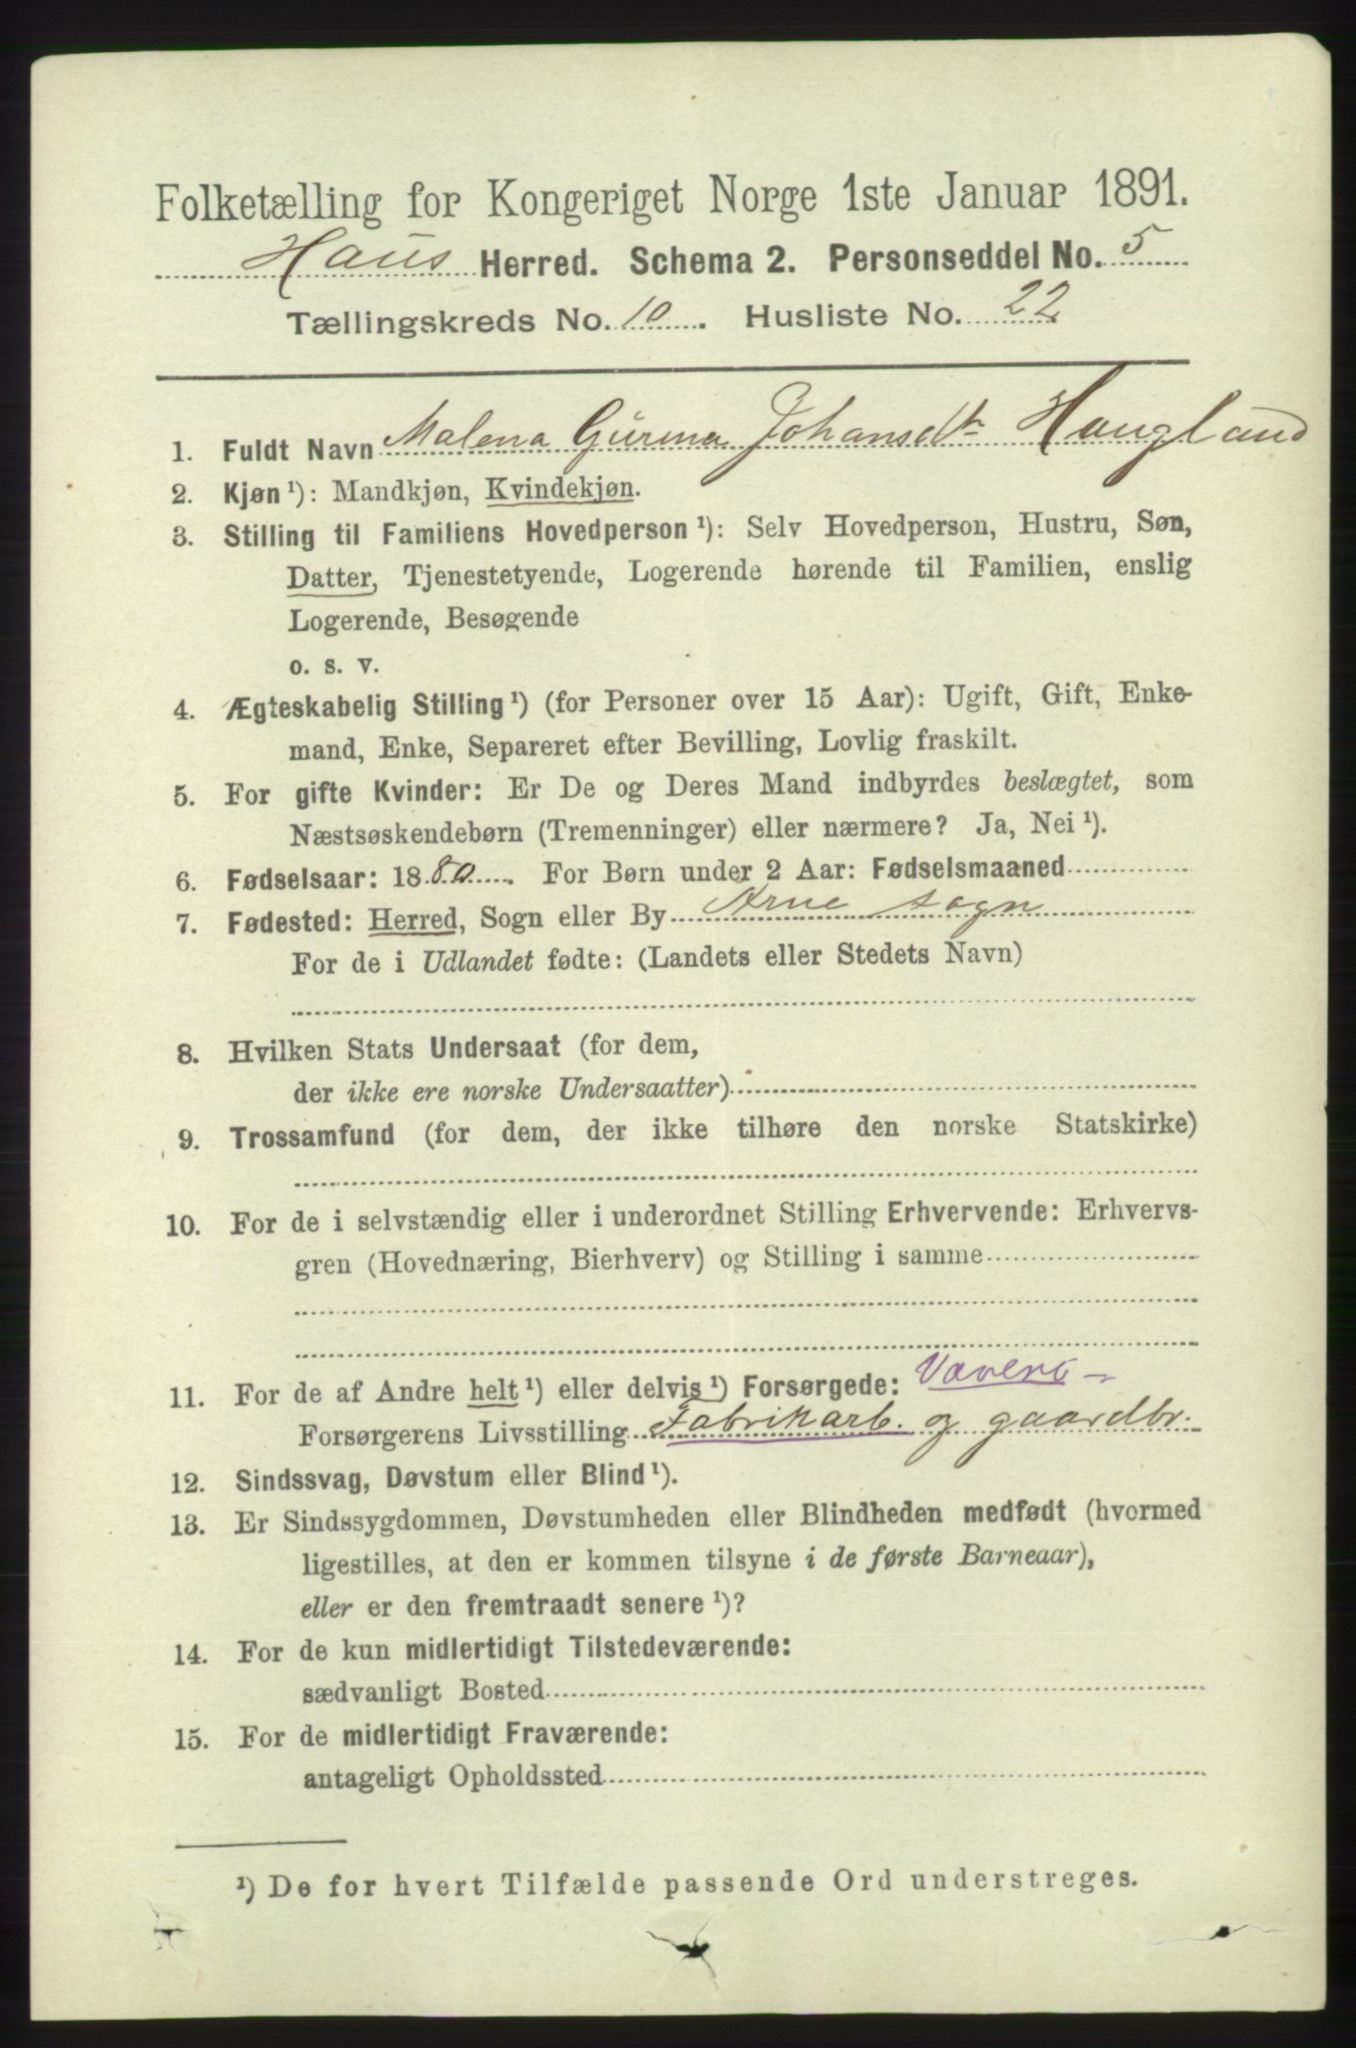 Folketælling for Kongeriget Norge 1ste Januar 1891.
Haus Herred. Schema 2. Personseddel No. 5
Tællingskreds No. 10. Husliste No. 22
1. Fuldt Navn Malena Gurina Johansdtr Haugland
2. Kjøn¹): Mandkjøn, Kvindekjøn.
3. Stilling til Familiens Hovedperson¹): Selv Hovedperson, Hustru, Søn,
Datter, Tjenestetyende, Logerende hørende til Familien, enslig
Logerende, Besøgende
o. s. v.
4. Ægteskabelig Stilling¹) (for Personer over 15 Aar): Ugift, Gift, Enke-
mand, Enke, Separeret efter Bevilling, Lovlig fraskilt.
5. For gifte Kvinder: Er De og Deres Mand indbyrdes beslægtet, som
Næstsøskendebørn (Tremenninger) eller nærmere? Ja, Nei¹).
6. Fødselsaar: 1880. For Børn under 2 Aar: Fødselsmaaned
7. Fødested: Herred, Sogn eller By Arne sogn
For de i Udlandet fødte: (Landets eller Stedets Navn)
8. Hvilken Stats Undersaat (for dem,
der ikke ere norske Undersaatter)
9. Trossamfund (for dem, der ikke tilhøre den norske Statskirke)
10. For de i selvstændig eller i underordnet Stilling Erhvervende: Erhvervs-
gren (Hovednæring, Bierhverv) og Stilling i samme
11. For de af Andre helt¹) eller delvis¹) Forsørgede:
Forsørgerens Livsstilling Fabrikarb. og gaardbr.
12. Sindssvag, Døvstum eller Blind¹).
13. Er Sindssygdommen, Døvstumheden eller Blindheden medfødt (hvormed
ligestilles, at den er kommen tilsyne i de første Barneaar),
eller er den fremtraadt senere¹)?
14. For de kun midlertidigt Tilstedeværende:
sædvanligt Bosted
15. For de midlertidigt Fraværende:
antageligt Opholdssted
¹) De for hvert Tilfælde passende Ord understreges.